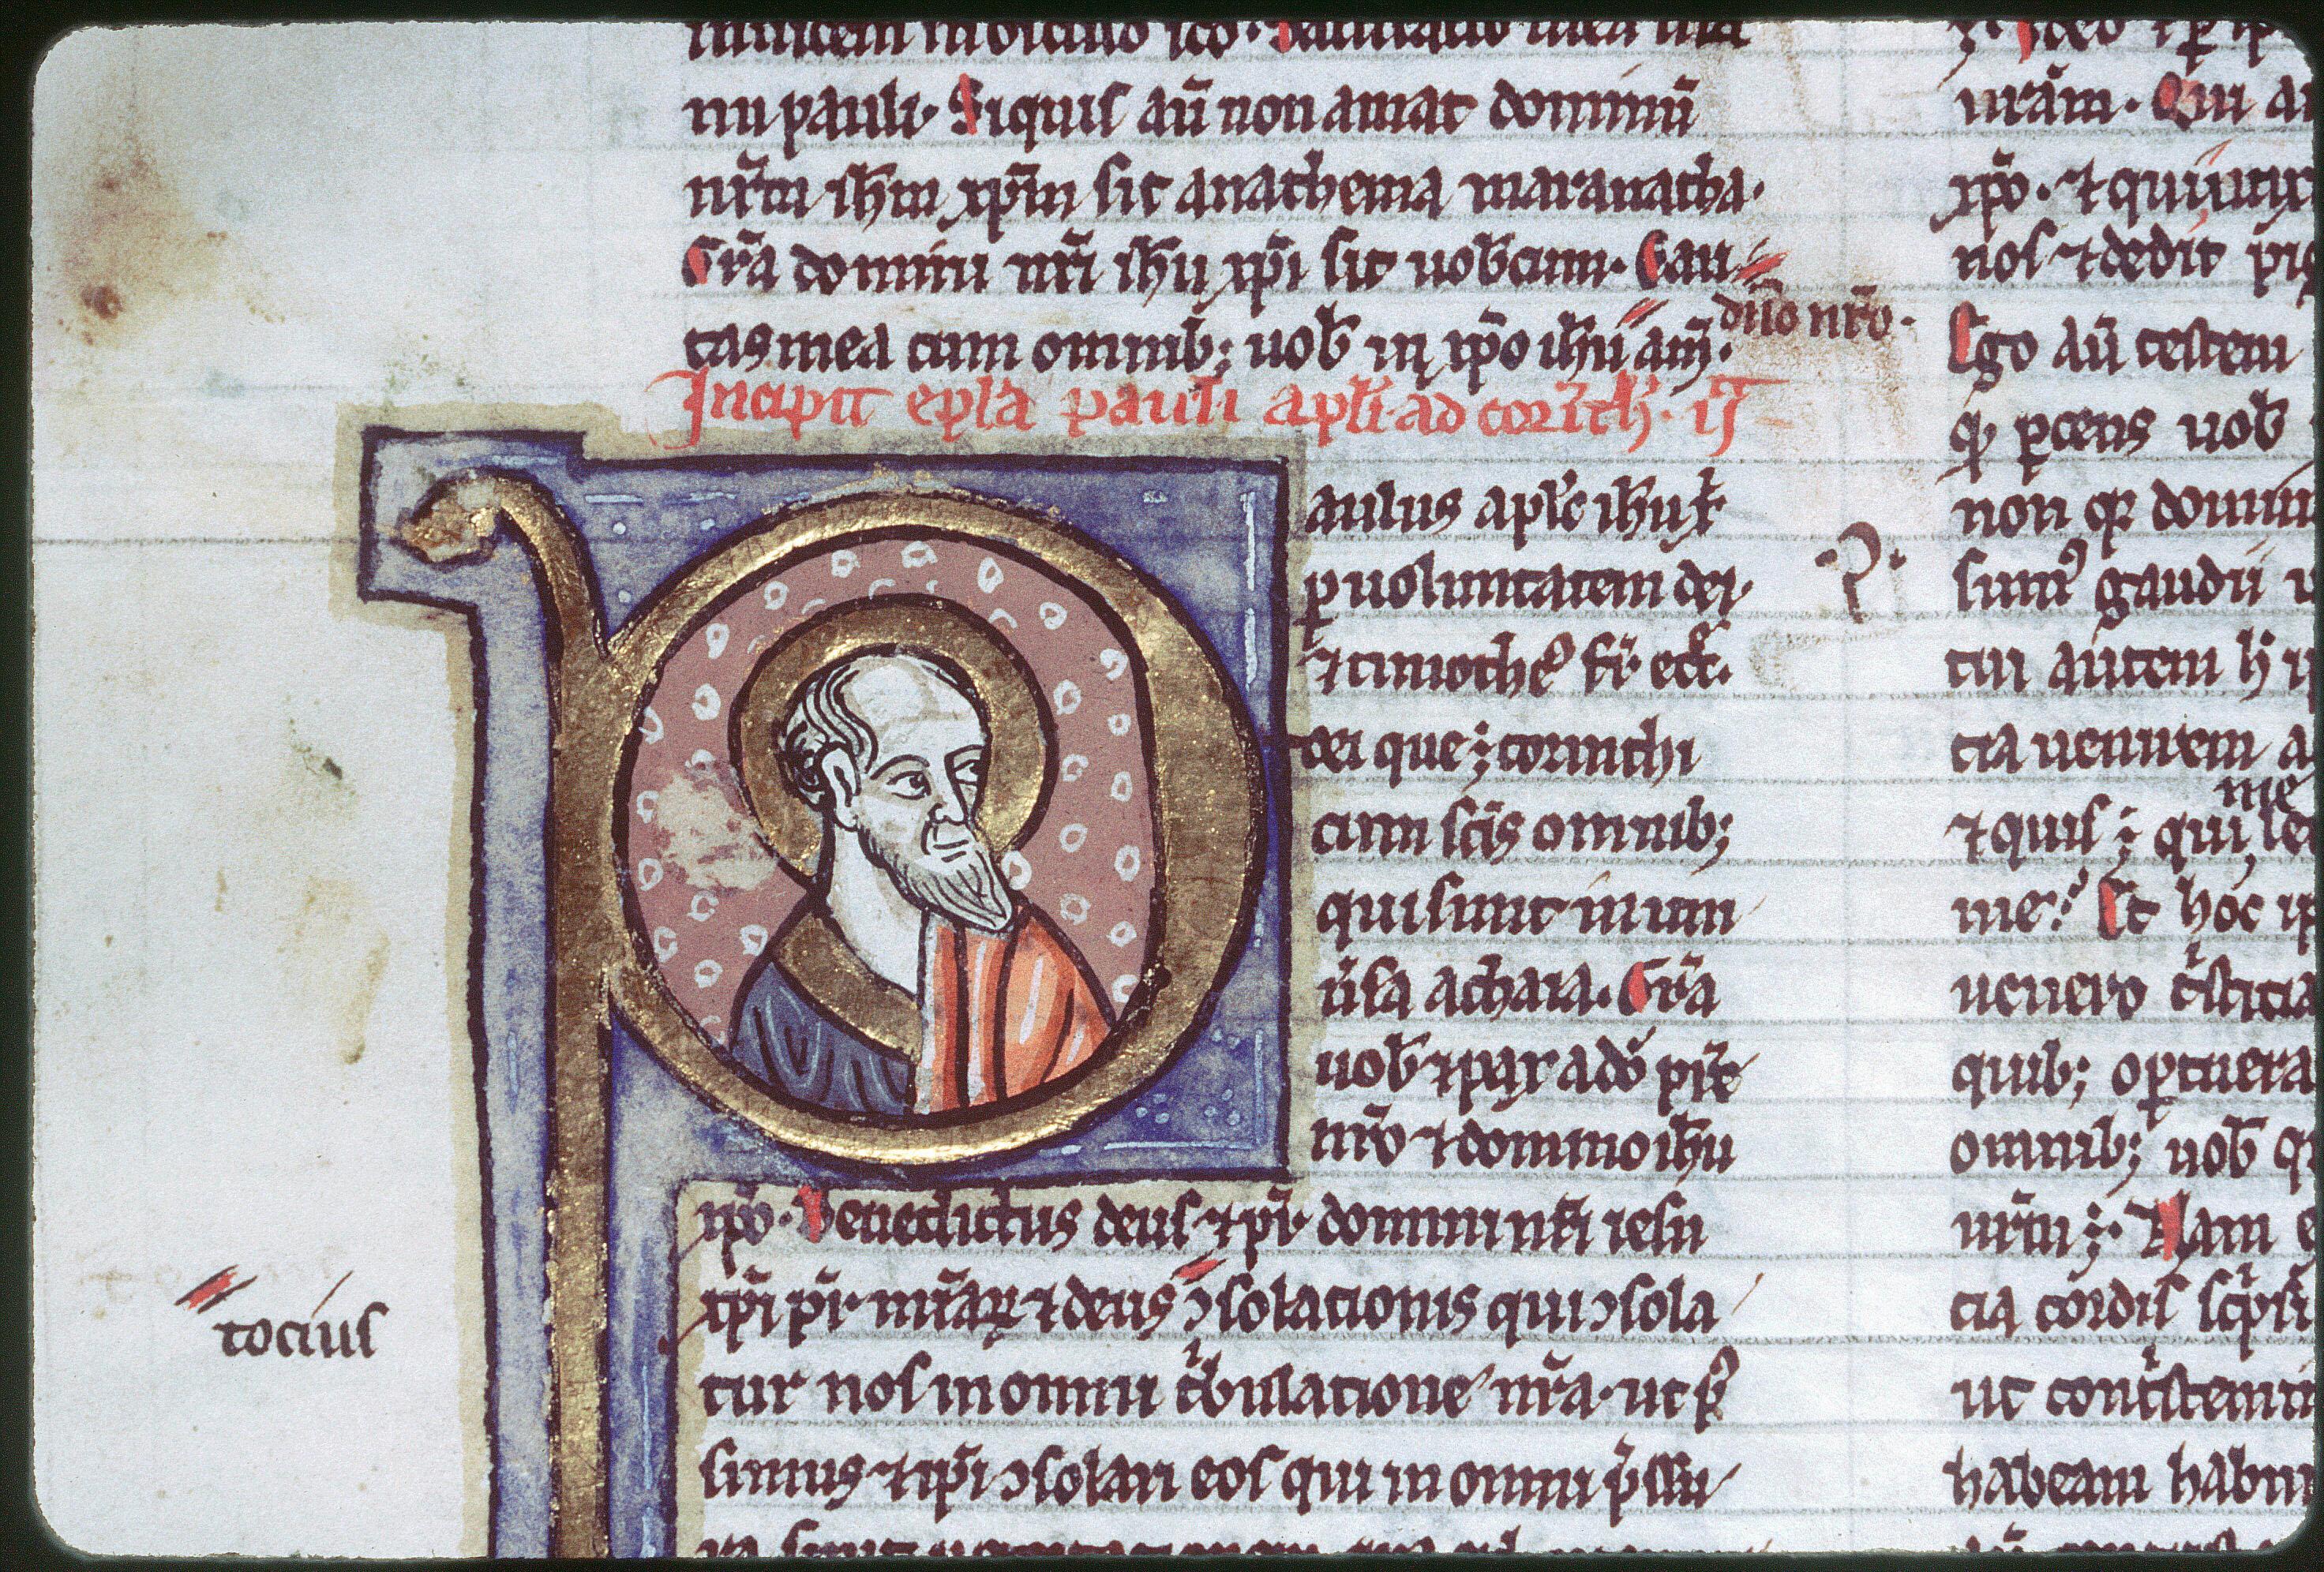 nu pauli. Siquis aū non amat dominū
nr̄m ih̄m xp̄m sit anathema maranatha.
Gr̄a domini nr̄i ih̄u xp̄i sit uob̄cum. Cari
tas mea cum omnib; uob̄ in xp̄o ih̄u am̄.
dn̄o nr̄o.
Incipit epl̄a pauli apl̄i ad corinth̄. ij
P
aulus apl̄s ih̄u x̄
ꝑ uoluntatem dei.
⁊ timotheꝰ fr̄ eccl̄.
dei que ÷ corinthi
cum sc̄is omnib;
qui sunt in uni
uersa achaia. Gr̄a
uob̄ ⁊ pax a dō pr̄e
nr̄o ⁊ domino ih̄u
xp̄o. Benedictus deus ⁊ pr̄ domini nr̄i iesu
xp̄i pr̄ mīaꝝ ⁊ deus ꝯsolationis qui ꝯsola
tocius
tur nos in omni tͥbulatione nr̄a. ut poſ
simus ⁊ ip̄i ꝯsolari eos qui in omni p̄ssu
nr̄am. Qui
xp̄o. ⁊ qui unx
nos ⁊ dedit pig
Ego aū testem
ꝙ ꝑcens uob̄
non ꝙ domin
sumꝰ gaudii
tui autem
tia uenirem a
me
⁊ quis ÷ qui le
me? Et hoc ip
uenero tͥsticia
quib; oportuera
omnib; uob̄ q
nr̄m ÷. Nam e
tia cordis sc̄psi
ut contͥstemi
habeam habu